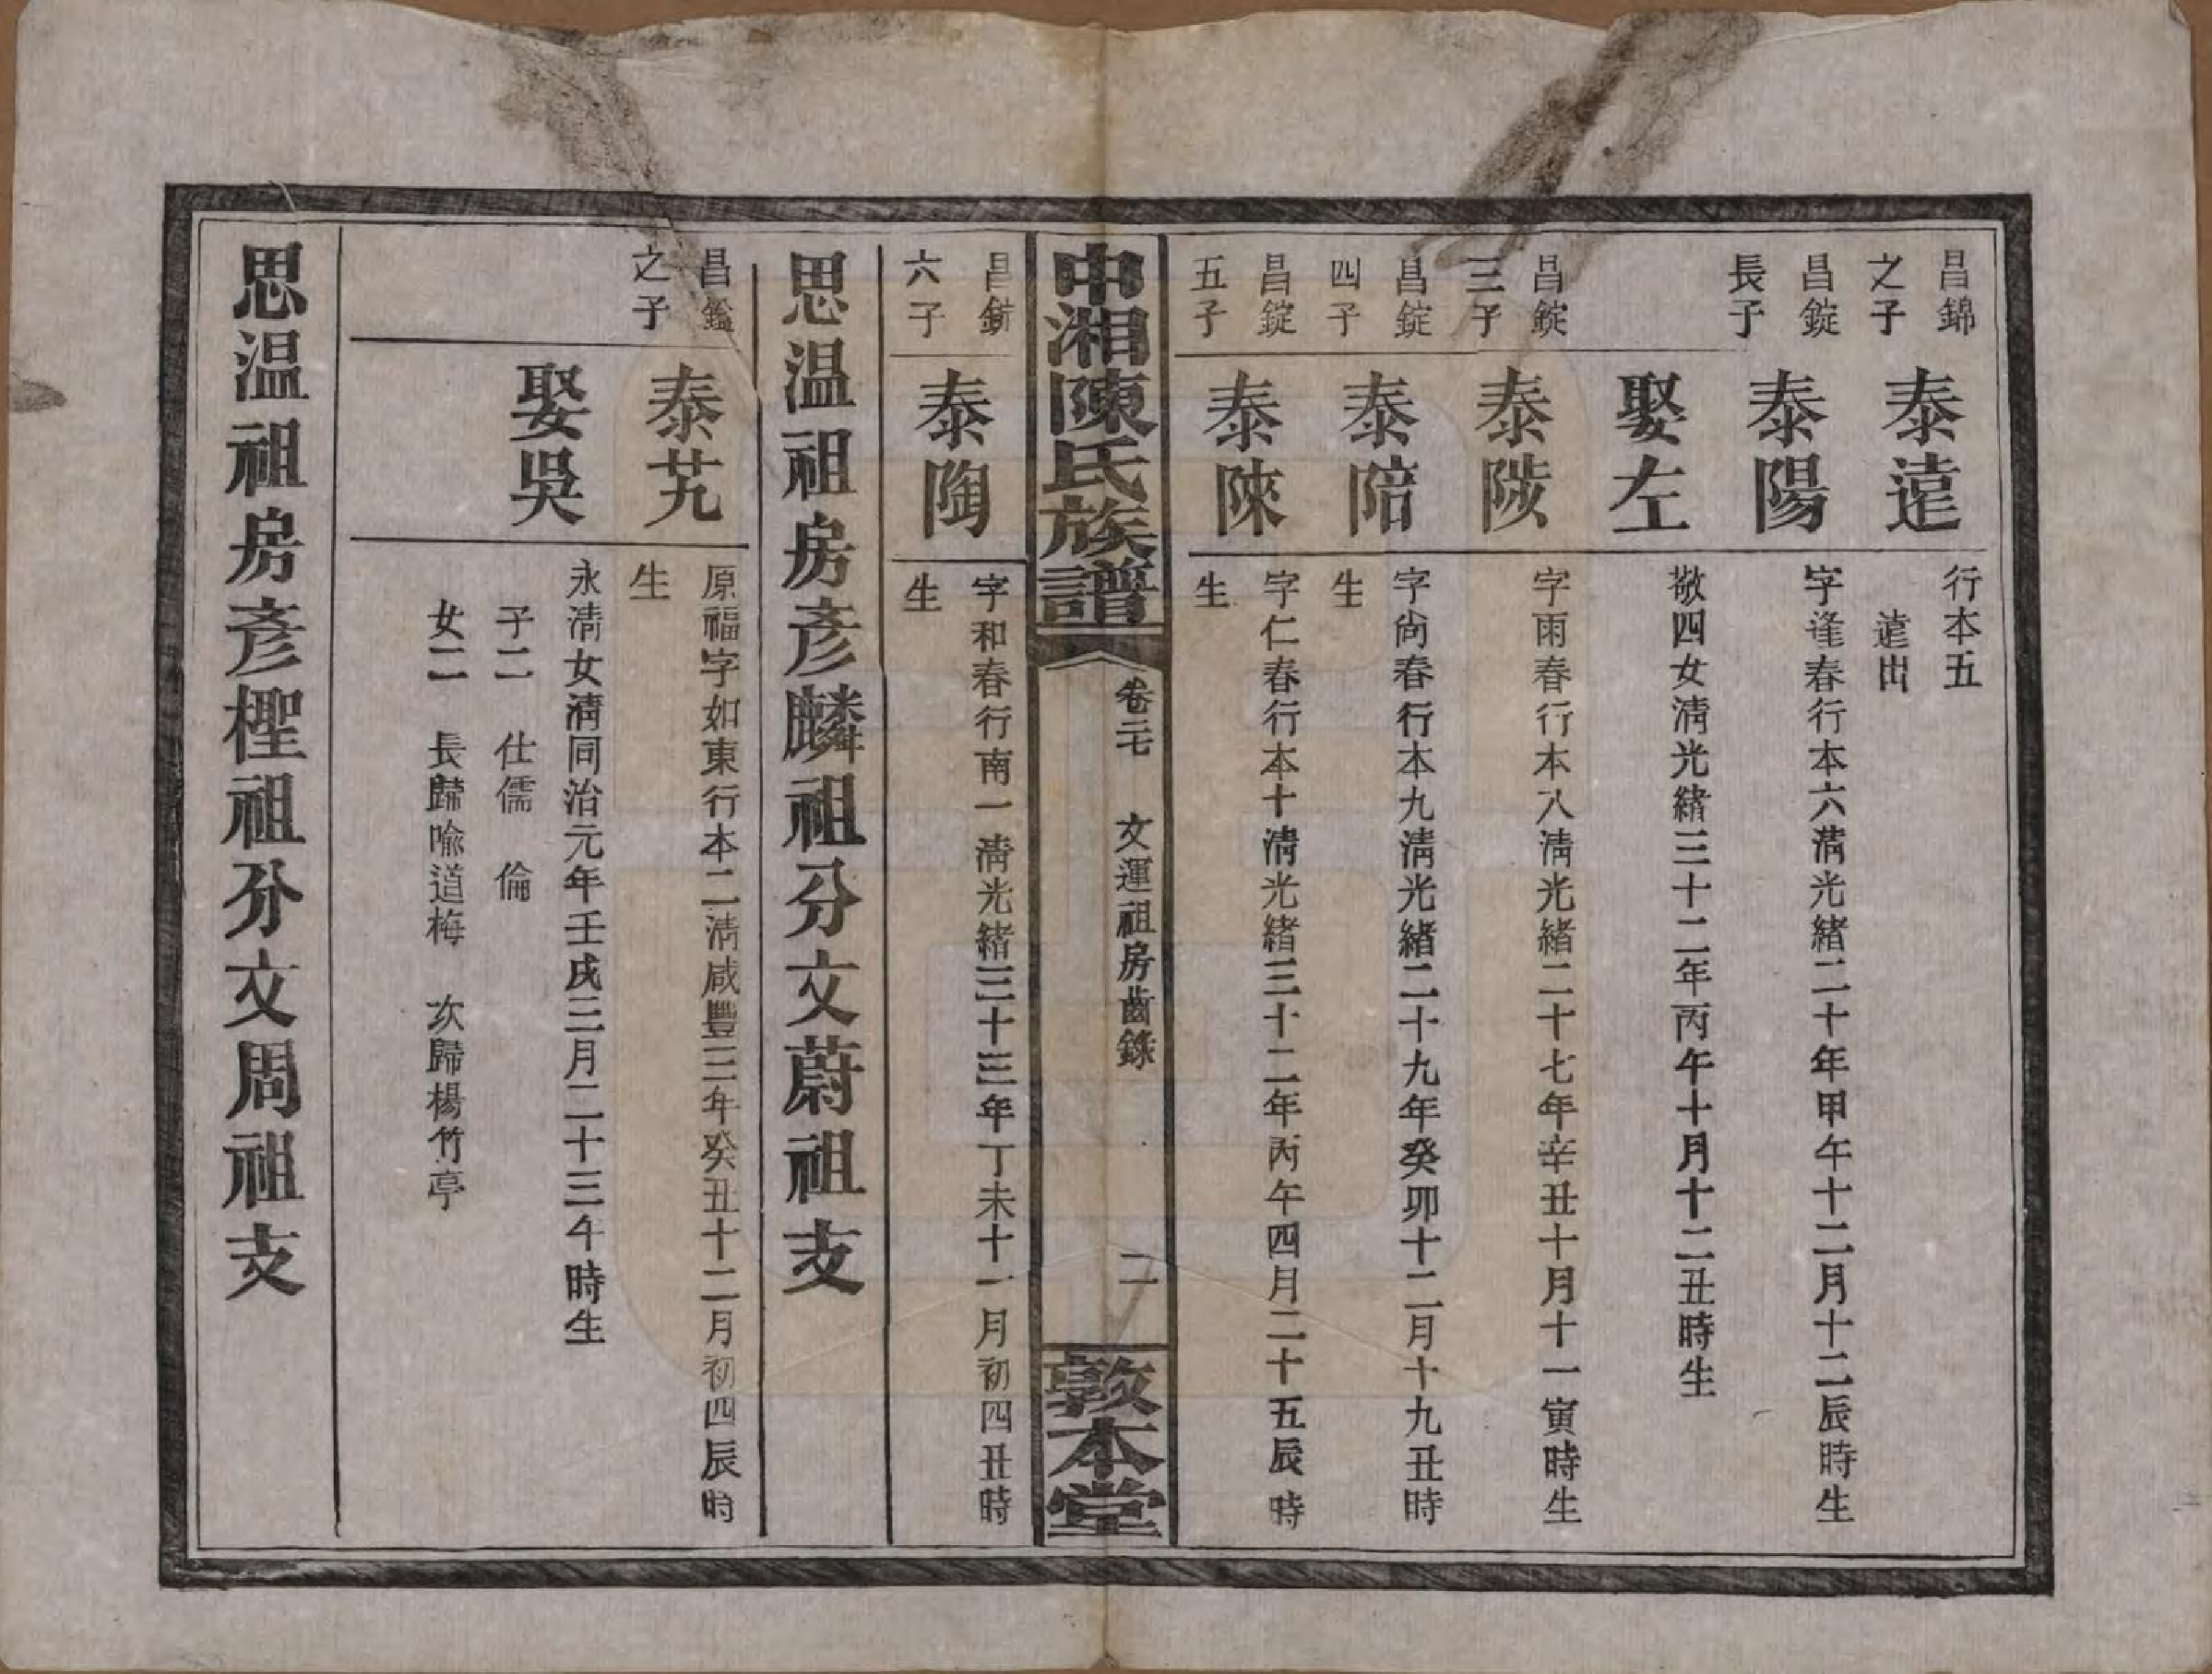 昌錦
之子
泰遠
行本五
遠出
昌錠
長子
泰陽
字逢春行本六淸光緒二十年甲午十二月十二辰時生
娶左
敬四女淸光緒三十二年丙午十月十二丑時生
昌錠
三子
泰陟
字雨春行本八淸光緒二十七年辛丑十月十一寅時生
昌錠
四子
泰陪
字尙春行本九淸光緒二十九年癸卯十二月十九丑時
生
昌錠
五子
泰陳
字仁春行本十淸光緒三十二年丙午四月二十五辰時
生
中湘陳氏族譜
卷二七
文運祖房齒錄
二
敦本堂
昌
六子
泰陶
字和春行南一淸光緒三十三年丁未十一月初四丑時
生
思温祖房彥麟祖分文蔚祖支
昌鑑
之子
泰艽
原福字如東行本二淸咸豐三年癸丑十二月初四辰時
生
娶吳
永淸女淸同治元年壬戌三月二十三午時生
子二　仕儒　倫
女二　長歸喩道梅　次歸楊竹亭
思温祖房彥檉祖分文周祖支